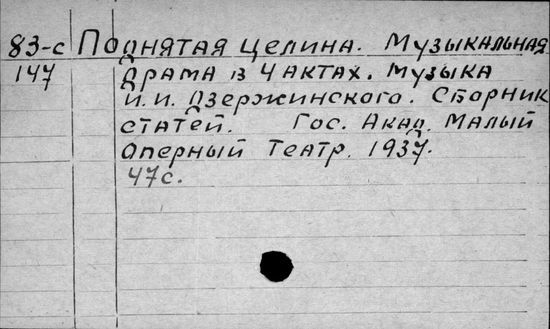 83-с Поднятая целина. Музыкальная
147 драма в 4 актах. Музыка
И. И. Дзержинского. Сборник
статей. Гос. Акад. Малый
оперный театр. 1937.
47 с.